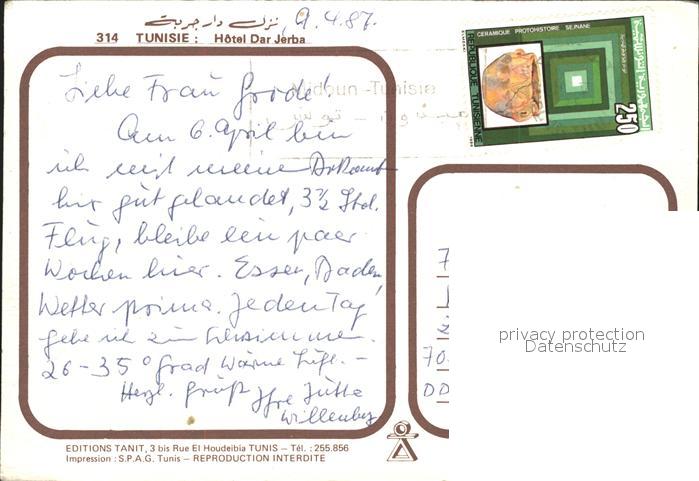 نزل دار جربة
9.4.87.
314 TUNISIE : Hôtel Dar Jerba
CERAMIQUE PROTOHISTOIRE SEJNANE
REPUBLIQUE TUNISIENNE
250
Midoun - Tunisie
ميدون - تونس
Liebe Frau Grode!
Am 6. April bin
ich mit meine
hier gut gelandet, 3½ Std.
Flug, bleibe ein paar
Wochen hier. Essen, Baden,
Wetter prima. Jeden Tag
gehe ich zum Schwimmen.
26-35° Grad Wärme Luft. -
Herzl. Grüße Ihre Jutta
Willenberg
privacy protection
Datenschutz
7
70
DD
EDITIONS TANIT, 3 bis Rue El Houdeibia TUNIS - Tél. : 255.856
Impression : S.P.A.G. Tunis - REPRODUCTION INTERDITE